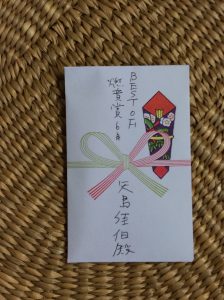 BEST OF
燃費賞6
矢島佳伯殿